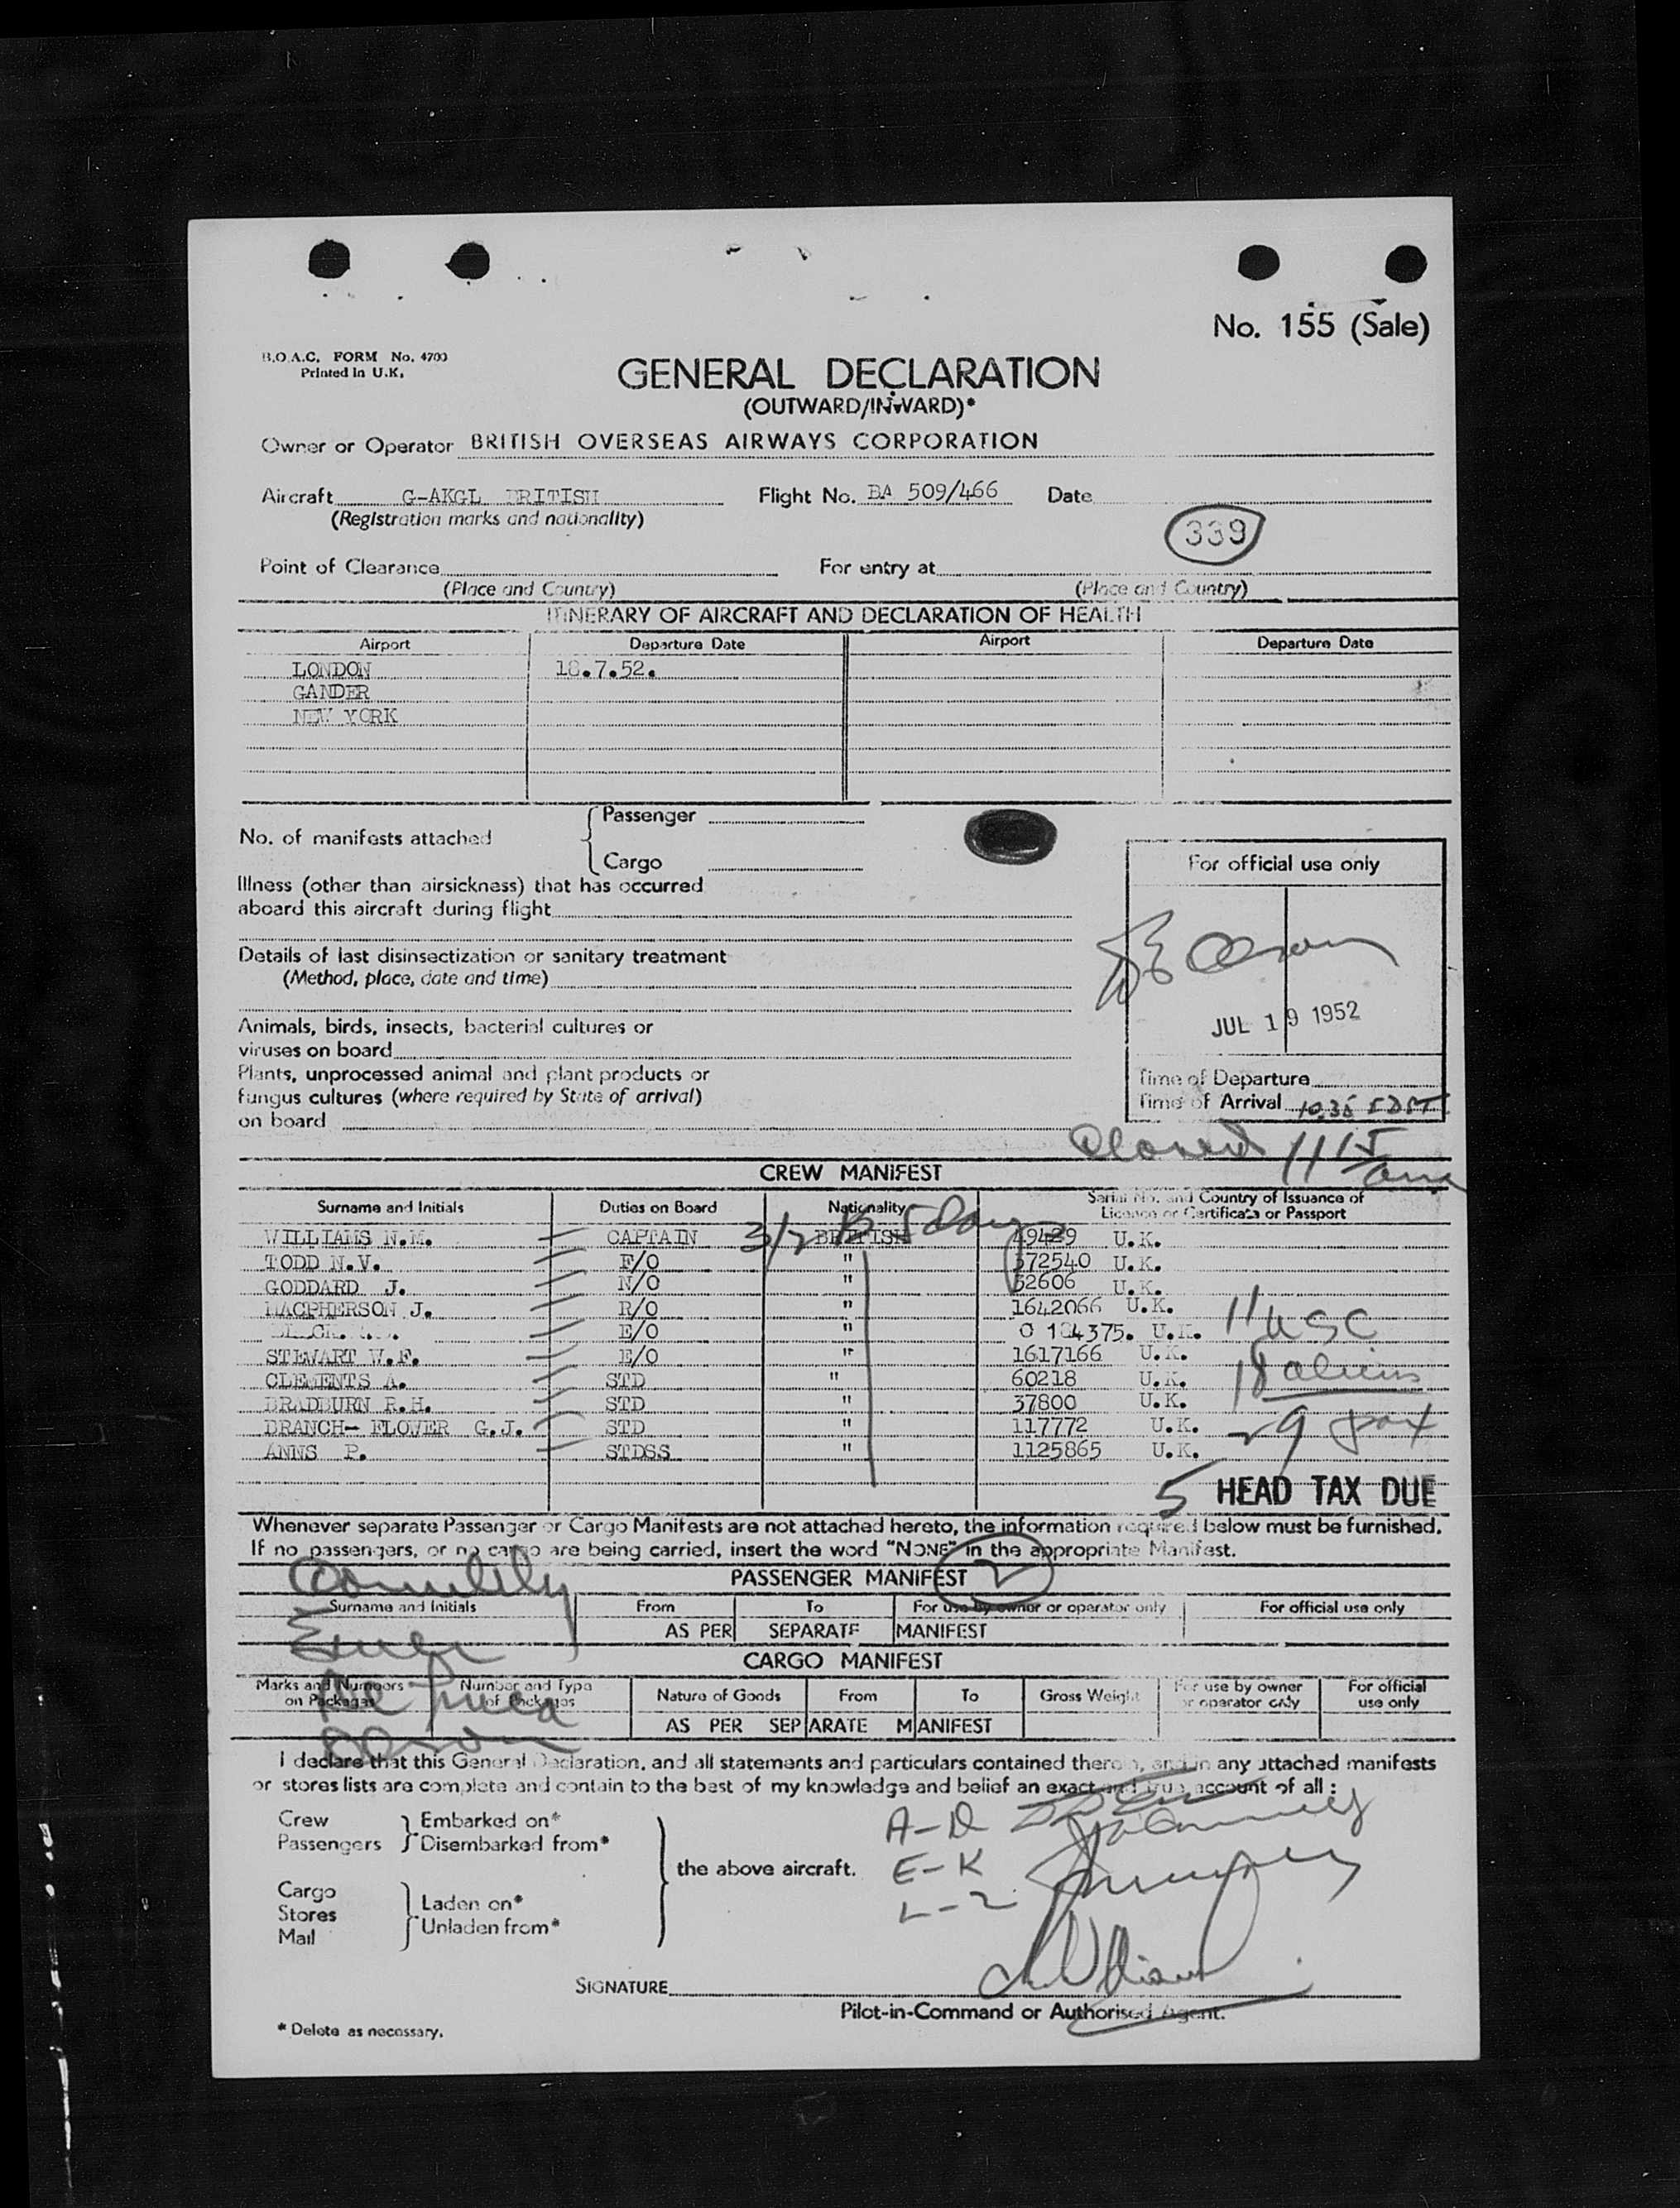 No. 155 (Sale)
B.O.A.C. FORM No. 4700
Printed in U.K.
GENERAL DECLARATION
(OUTWARD/INWARD)*
Owner or Operator BRITISH OVERSEAS AIRWAYS CORPORATION
Aircraft G-AKGL BRITISH Flight No. BA 509/466 Date
(Registration marks and nationality)
339
Point of Clearance For entry at
(Place and Country) (Place and Country)
ITINERARY OF AIRCRAFT AND DECLARATION OF HEALTH
Airport Departure Date Airport Departure Date
LONDON 18.7.52.
GANDER
NEW YORK
No. of manifests attached
Passenger
Cargo
For official use only
Illness (other than airsickness) that has occurred
aboard this aircraft during flight
Details of last disinsectization or sanitary treatment
(Method, place, date and time)
JUL 19 1952
Animals, birds, insects, bacterial cultures or
viruses on board
Plants, unprocessed animal and plant products or
fungus cultures (where required by State of arrival)
on board
Time of Departure
Time of Arrival 10.35 EDST
Closed 1115 am
CREW MANIFEST
Surname and Initials Duties on Board Nationality Serial No. and Country of Issuance of
Licence or Certificate or Passport
WILLIAMS N.M. CAPTAIN BRITISH 49429 U.K.
TODD N.V. F/O " 372540 U.K.
GODDARD J. N/O " 52606 U.K.
MACPHERSON J. R/O " 1642066 U.K.
E/O " U.K.
STEWART W.F. E/O " 1617166 U.K.
CLEMENTS A. STD " 60218 U.K.
BRADBURN R.H. STD " 37800 U.K.
BRANCH- FLOWER G.J. STD " 117772 U.K.
ANNS P. STDSS " 1125865 U.K.
11 USC
18 aliens
29 pax
5 HEAD TAX DUE
Whenever separate Passenger or Cargo Manifests are not attached hereto, the information required below must be furnished.
If no passengers, or no cargo are being carried, insert the word "NONE" in the appropriate Manifest.
PASSENGER MANIFEST 2
Surname and Initials From To For use by owner or operator only For official use only
AS PER SEPARATE MANIFEST
CARGO MANIFEST
Marks and Numbers on Packages Number and Type of Packages Nature of Goods From To Gross Weight For use by owner or operator only For official use only
AS PER SEPARATE MANIFEST
I declare that this General Declaration, and all statements and particulars contained therein, and in any attached manifests
or stores lists are complete and contain to the best of my knowledge and belief an exact and true account of all :
Crew Embarked on*
Passengers Disembarked from*
the above aircraft.
A-D
E-K
L-Z
Cargo
Stores
Mail
Laden on*
Unladen from*
SIGNATURE
Pilot-in-Command or Authorised Agent.
* Delete as necessary.